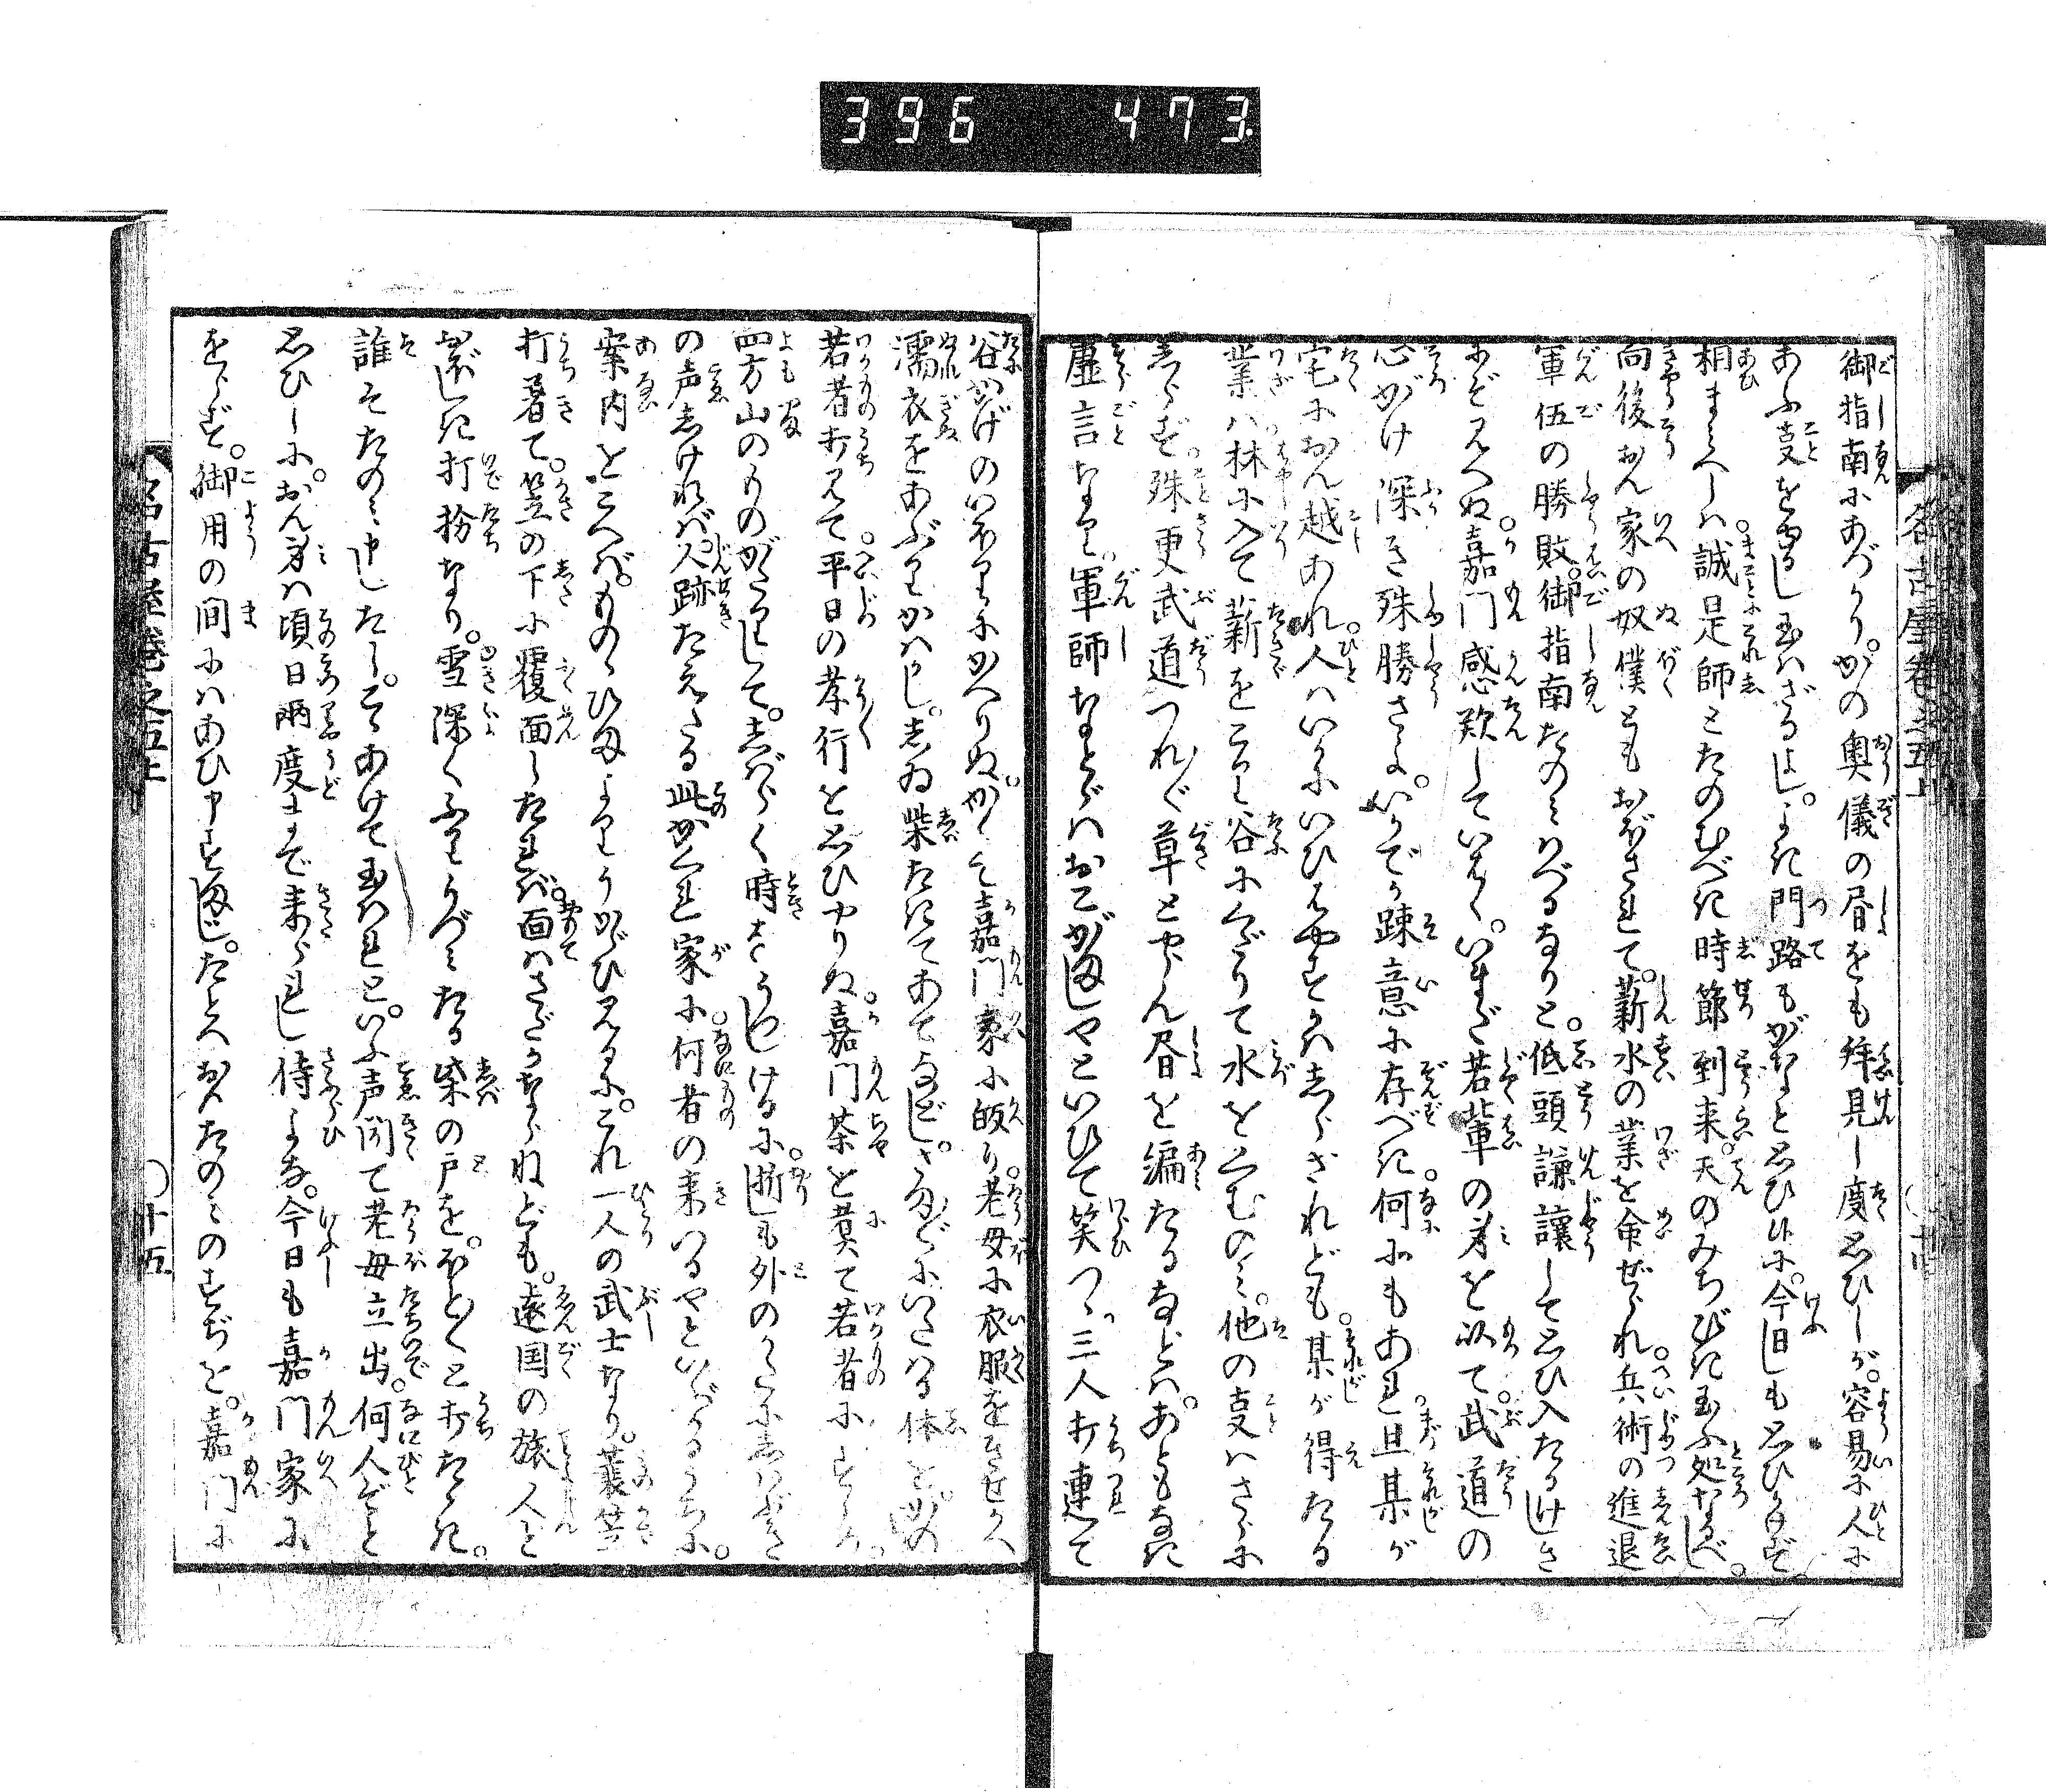 396 473
御指南にあづかり。かの奥儀の昏をも拜見し度思ひしが。容易に人に
あふ事をゆるし玉はざるよし。よき門路もがなと思ひ候に。今日しも思ひかけず
相まみへしは。誠是師とたのむべき時節到来。天のみちびき玉ふ処なるべし。
向後おん家の奴僕ともおぼされて。薪水の業を命ぜられ。兵術の進退
軍伍の勝敗。御指南たのみはべるなりと。低頭謙譲して思ひ入たるけしき
みぞみへぬ。嘉門感歎していはく。いまだ若輩の身を以て。武道の
心がけ深き殊勝さよ。いかでか疎意に存べき。何にもあれ。且某が
宅におん越あれ。人はいかにいひはやすかはしらざれども。某が得たる
業は。林に入て薪をこり谷にくだりて水をくむのみ。他の事はさらに
しらず。殊更武道つれ〴〵草とやらん昏を編たるなどは。あともなき
虚言なり。軍師などゝはおこがましやといひて笑つゝ。三人打連て
谷かげのいほりにかへりぬ。かくて嘉門家に皈り。老母に衣服をきせかへ
濡衣をあぶりかはかし。しゐ柴たきてあてなどし。さまざまにいたはる体を。かの
若者打見て。平日の孝行を思ひやりぬ。嘉門茶を煑て若者にすゝめ。
四方山のものがたりして。しばらく時をうつしけるに。折しも外のかたにしはぶき
の声しければ。人跡たえたる此かくれ家に。何者の来つるやといぶかるうちに。
案内をこへば。ものゝひまよりうかがひ見るに。これ一人の武士なり。蓑笠
打着て。笠の下に覆面したれば。面はさだかならねども。遠国の旅人と
おぼしき打扮なり。雪深くふりうづみたる柴の戸を。ほと〳〵と打たゝき。
誰そたのみ申したし。こゝあけて玉はれと。いふ声聞て老母立出。何人ぞと
思ひしに。おん身は頃日両度まで来られし侍よな。今日も嘉門家に
をらず。御用の間にはあひ申すまじ。たとへおんたのみのすぢを。嘉門に
名古屋巻之五上
十五